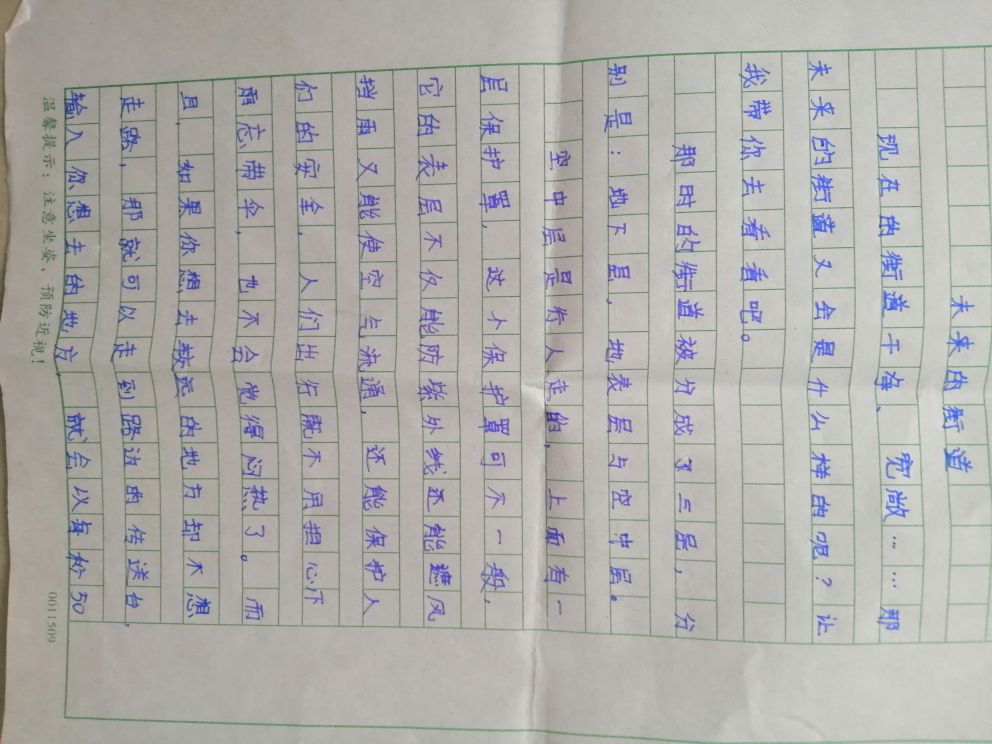 未来的街道
现在的街道干净、宽敞……那
未来的街道又会是什么样的呢？让
我带你去看看吧。
那时的街道被分成了三层，分
别是：地下层，地表层与空中层。
空中层是行人走的，上面有一
层保护罩，这个保护罩可不一般，
它的表层不仅能防紫外线还能遮风
挡雨又能使空气流通，还能保护人
们的安全，人们出行既不用担心下
雨忘带伞，也不会觉得闷热了。而
且，如果你想去较远的地方却不想
走路，那就可以走到路边的传送台，
输入你想去的地方，就会以每秒50
温馨提示：注意坐姿、预防近视！
0011509